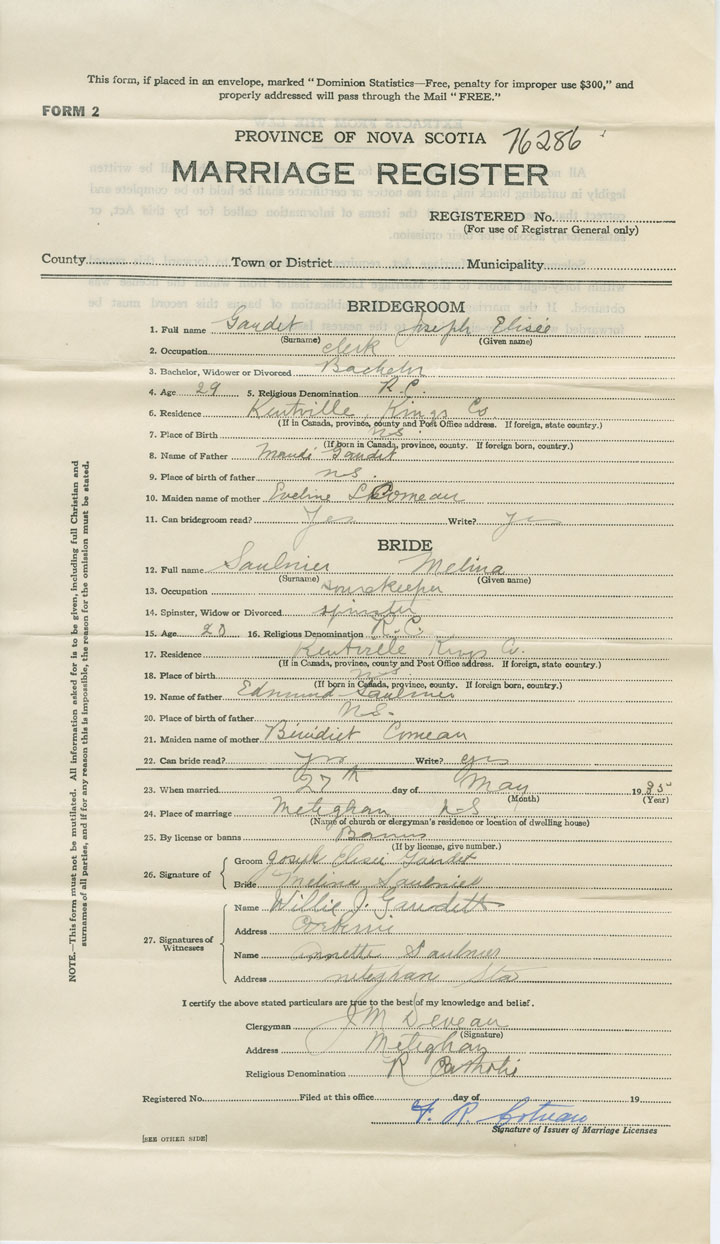 This form, if placed in an envelope, marked "Dominion Statistics—Free, penalty for improper use $300," and
properly addressed will pass through the Mail "FREE."
FORM 2
PROVINCE OF NOVA SCOTIA 76286
MARRIAGE REGISTER
REGISTERED No.
(For use of Registrar General only)
County Town or District Municipality
BRIDEGROOM
1. Full name Gaudet Joseph Elisée
(Surname) (Given name)
2. Occupation clerk
3. Bachelor, Widower or Divorced Bachelor
4. Age 29 5. Religious Denomination R.C.
6. Residence Kentville, Kings Co
(If in Canada, province, county and Post Office address. If foreign, state country.)
7. Place of Birth N.S.
(If born in Canada, province, county. If foreign born, country.)
8. Name of Father Gaudet
9. Place of birth of father N.S.
10. Maiden name of mother Eveline Comeau
11. Can bridegroom read? Yes Write? yes
BRIDE
12. Full name Saulnier Melina
(Surname) (Given name)
13. Occupation
14. Spinster, Widow or Divorced spinster
15. Age 20 16. Religious Denomination R.C.
17. Residence Kentville Kings Co.
(If in Canada, province, county and Post Office address. If foreign, state country.)
18. Place of birth N.S.
(If born in Canada, province, county. If foreign born, country.)
19. Name of father Edmund Saulnier
20. Place of birth of father N.S.
21. Maiden name of mother Bénidict Comeau
22. Can bride read? yes Write? yes
23. When married 27th day of May 1935
(Month) (Year)
24. Place of marriage Meteghan N-S
(Name of church or clergyman's residence or location of dwelling house)
25. By license or banns Banns
(If by license, give number.)
26. Signature of Groom Joseph Elisée Gaudet
Bride Melina Saulnier
27. Signatures of Witnesses
Name Willie J. Gaudett
Address
Name Annette Saulnier
Address Meteghan Sta
I certify the above stated particulars are true to the best of my knowledge and belief.
Clergyman J M Deveau
(Signature)
Address Meteghan
Religious Denomination R Catholic
Registered No. Filed at this office day of 19
F. R.
Signature of Issuer of Marriage Licenses
[SEE OTHER SIDE]
NOTE.—This form must not be mutilated. All information asked for is to be given, including full Christian and
surnames of all parties, and if for any reason this is impossible, the reason for the omission must be stated.